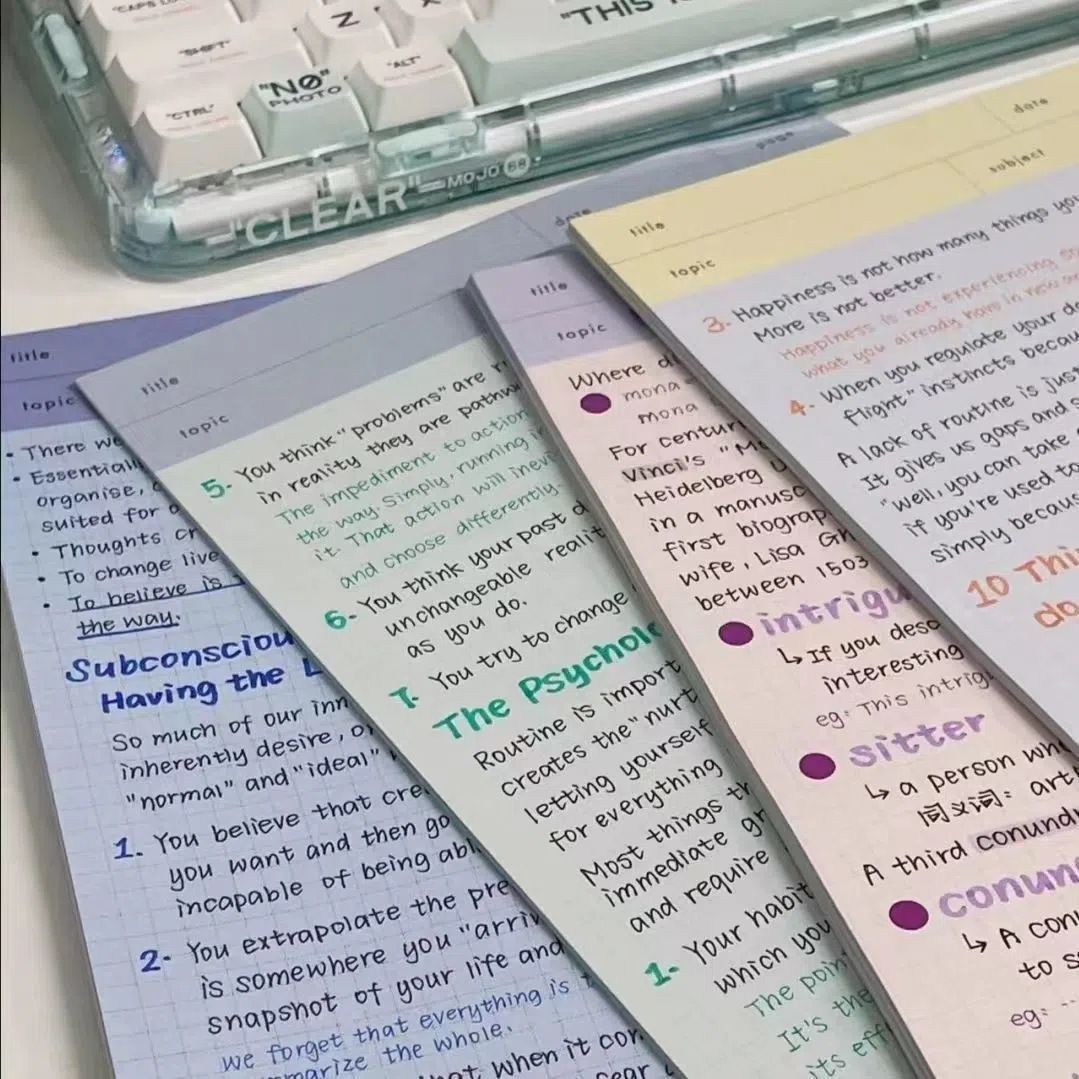 "SHIFT"
Z
X
"THIS
"CTRL"
"NØ"
PHOTO
"ALT"
"CLEAR"
MOJO 68
title
topic
• There we
• Essentiall
organise,
suited for
• Thoughts
• To change live
• To believe is
the way.
Subconsciou
Having the L
So much of our inn
inherently desire, o
"normal" and "ideal"
1. You believe that cre
you want and then go
incapable of being abl
2- You extrapolate the pre
is somewhere you "arriv
snapshot of your life and
we forget that everything is
the whole.
when it
date
title
topic
5- You think "problems" are
in reality they are pathw
The impediment to action
the way. Simply, running
it. That action will inevi
and choose differently.
6- You think your past
unchangeable realit
as you do.
7- You try to change
The Psycholo
Routine is import
creates the "nurt
letting yourself
for everything
Most things th
immediate gr
and require
1- Your habit
which you
The poin
It's the
its eff
title
topic
Where d
mona
mona
For centur
Vinci's "Mo
Heidelberg U
in a manusc
first biograp
wife, Lisa Gh
between 1503
intrigu
↳ If you desc
interesting
eg: This intrig
sitter
↳ a person wh
同义词: art
A third conundr
conun
↳ A con
to s
eg: --
title
date
topic
subject
3. Happiness is not how many things you
More is not better.
Happiness is not experiencing
what you already have in new
4. When you regulate your
flight" instincts becau
A lack of routine is just
It gives us gaps and s
"well, you can take
if you're used to
simply becaus
10 Thi
do